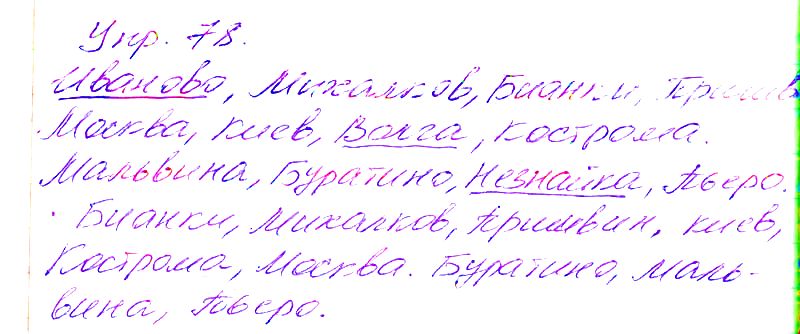 Упр. 78.
Иваново, Михалков, Бианки, Пришв
Москва, Киев, Волга, Кострома.
Мальвина, Буратино, Незнайка, Пьеро.
Бианки, Михалков, Пришвин, Киев,
Кострома, Москва. Буратино, Маль-
вина, Пьеро.